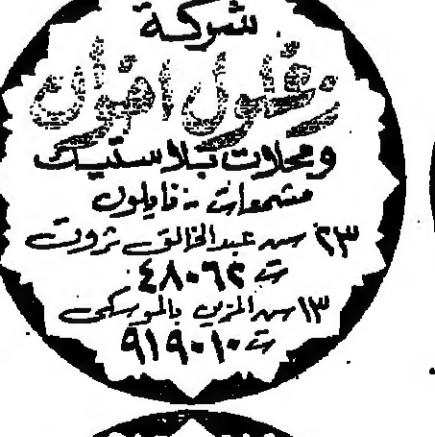 شركة
زغلول اخوان
ومحلات بلاستيك
مشمعات - نايلون
٢٣ ش عبدالخالق ثروت
ت ٤٨٠٦٢
١٣ ش المزين بالموسكى
ت ٩١٩٠١٠